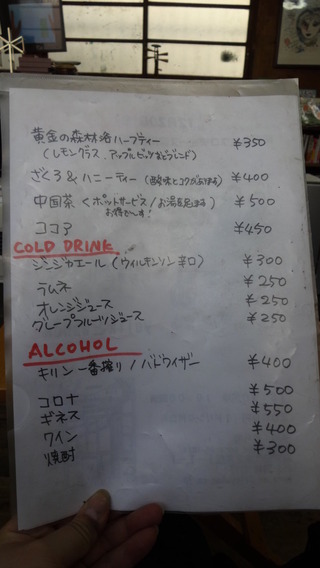 黄金の森林浴ハーブティー ¥350
(レモングラス、アップルピップスなどブレンド)
ざくろ&ハニーティー (酸味とコクがある) ¥400
中国茶 <ポットサービス/お湯足します> ¥500
お得でーす!
ココア ¥450
COLD DRINK
ジンジャエール (ウィルキンソン辛口) ¥300
ラムネ ¥250
オレンジジュース ¥250
グレープフルーツジュース ¥250
ALCOHOL
キリン一番搾り/バドワイザー ¥400
コロナ ¥500
ギネス ¥550
ワイン ¥400
焼酎 ¥300